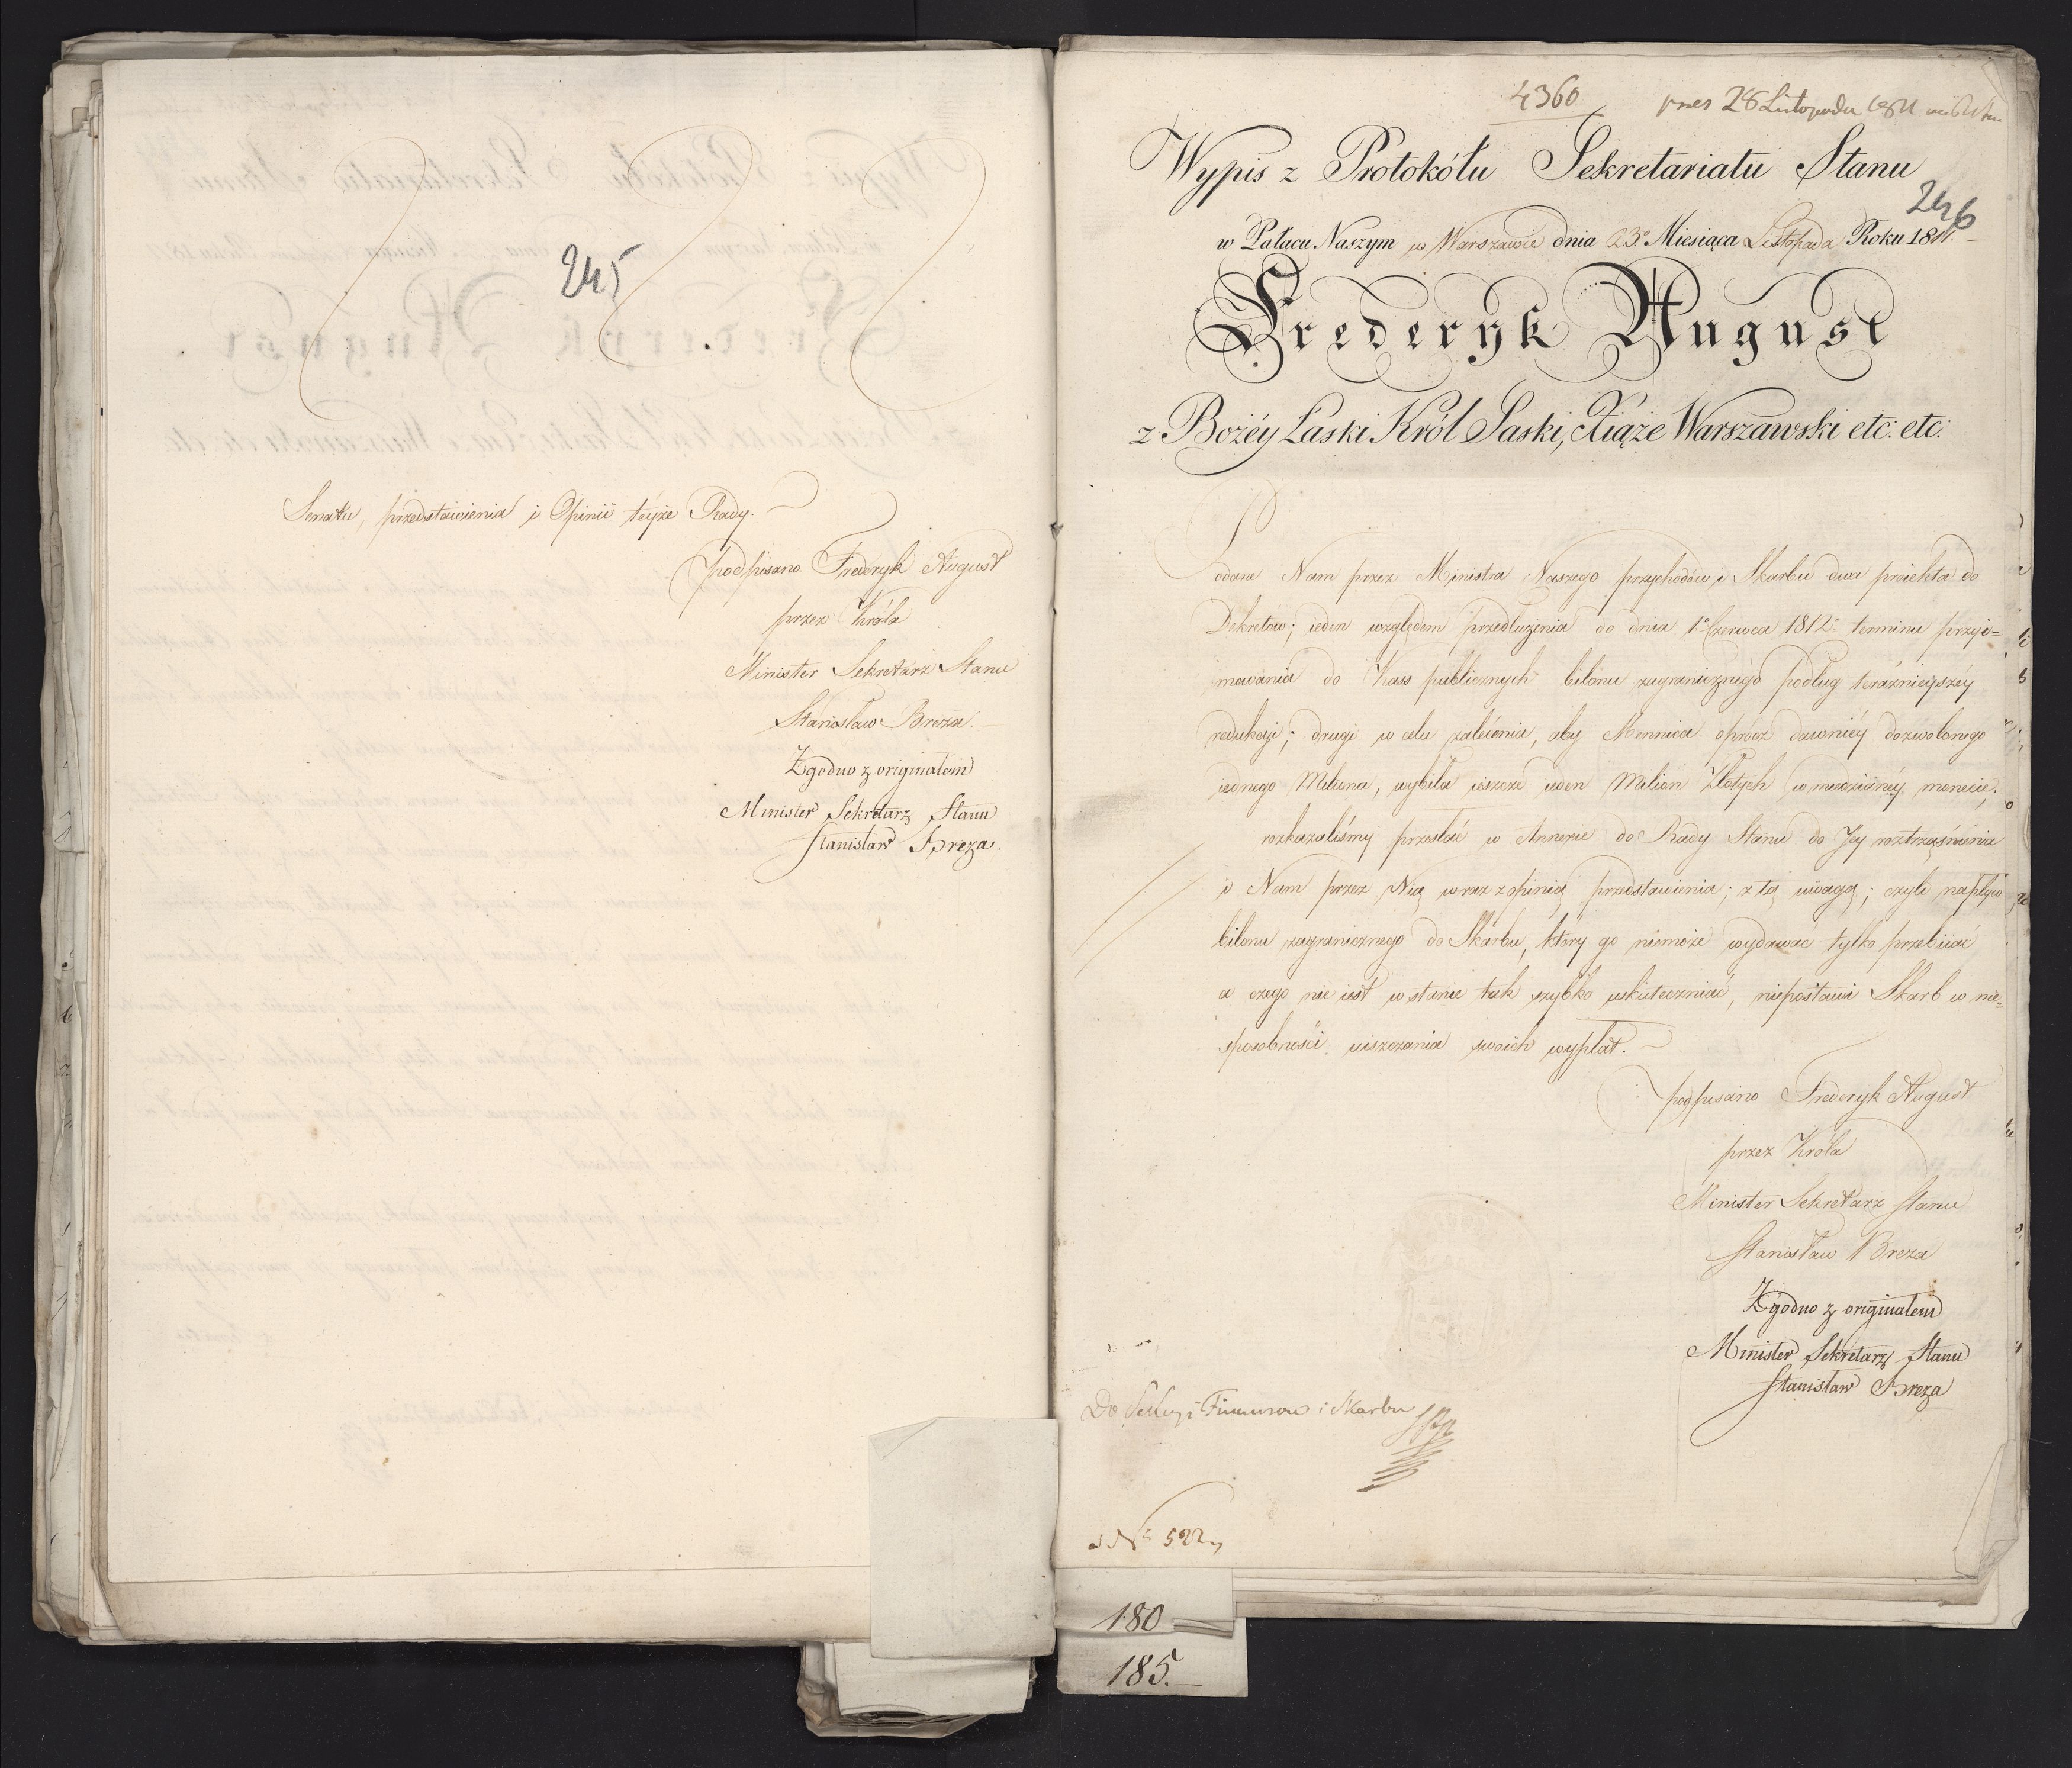 245
Senatu, przedstawienia i Opinii teyże Rady.
podpisano Frederyk August
przez Króla
Minister Sekretarz Stanu
Stanisław Breza.
Zgodno z originałem
Minister Sekretarz Stanu
Stanisław Breza.
4360
pres 28 Listopada 1811
Wypis z Protokółu Sekretariatu Stanu
246
w Pałacu Naszym w Warszawie dnia 23º Miesiąca Listopada Roku 1811.
Frederyk August
z Bożéy Łaski Król Saski, Xiąże Warszawski etc: etc:
Podane Nam przez Ministra Naszego przychodów i Skarbu dwa proiekta do
Dekretów; ieden względem przedłużenia do dnia 1º Czerwca 1812º terminu przyi-
mowania do Kass publicznych bilonu zagranicznego podług teraźnieyszéy
redukcyi; drugi w celu zalecenia, aby Mennica oprócz dawniéy dozwolonego
iednego Miliona, wybiła ieszcze ieden Milion Złotych w miedzianéy monecie;
rozkazaliśmy przesłać w Annexie do Rady Stanu do Jéy roztrząśnienia
i Nam przez Nię wraz z opinią przedstawienia; z tą uwagą; czyli napływ
bilonu zagranicznego do Skarbu, który go niemoże wydawać tylko przebiiać
a czego nie iest w stanie tak szybko uskuteczniać, niepostawi Skarb w nie-
sposobności uiszczania swoich wypłat.
podpisano Frederyk August
przez Króla
Minister Sekretarz Stanu
Stanisław Breza
Zgodno z originałem
Minister Sekretarz Stanu
Stanisław Breza
Do Sekcyi Finansow i Skarbu
Nº 522
180
185.